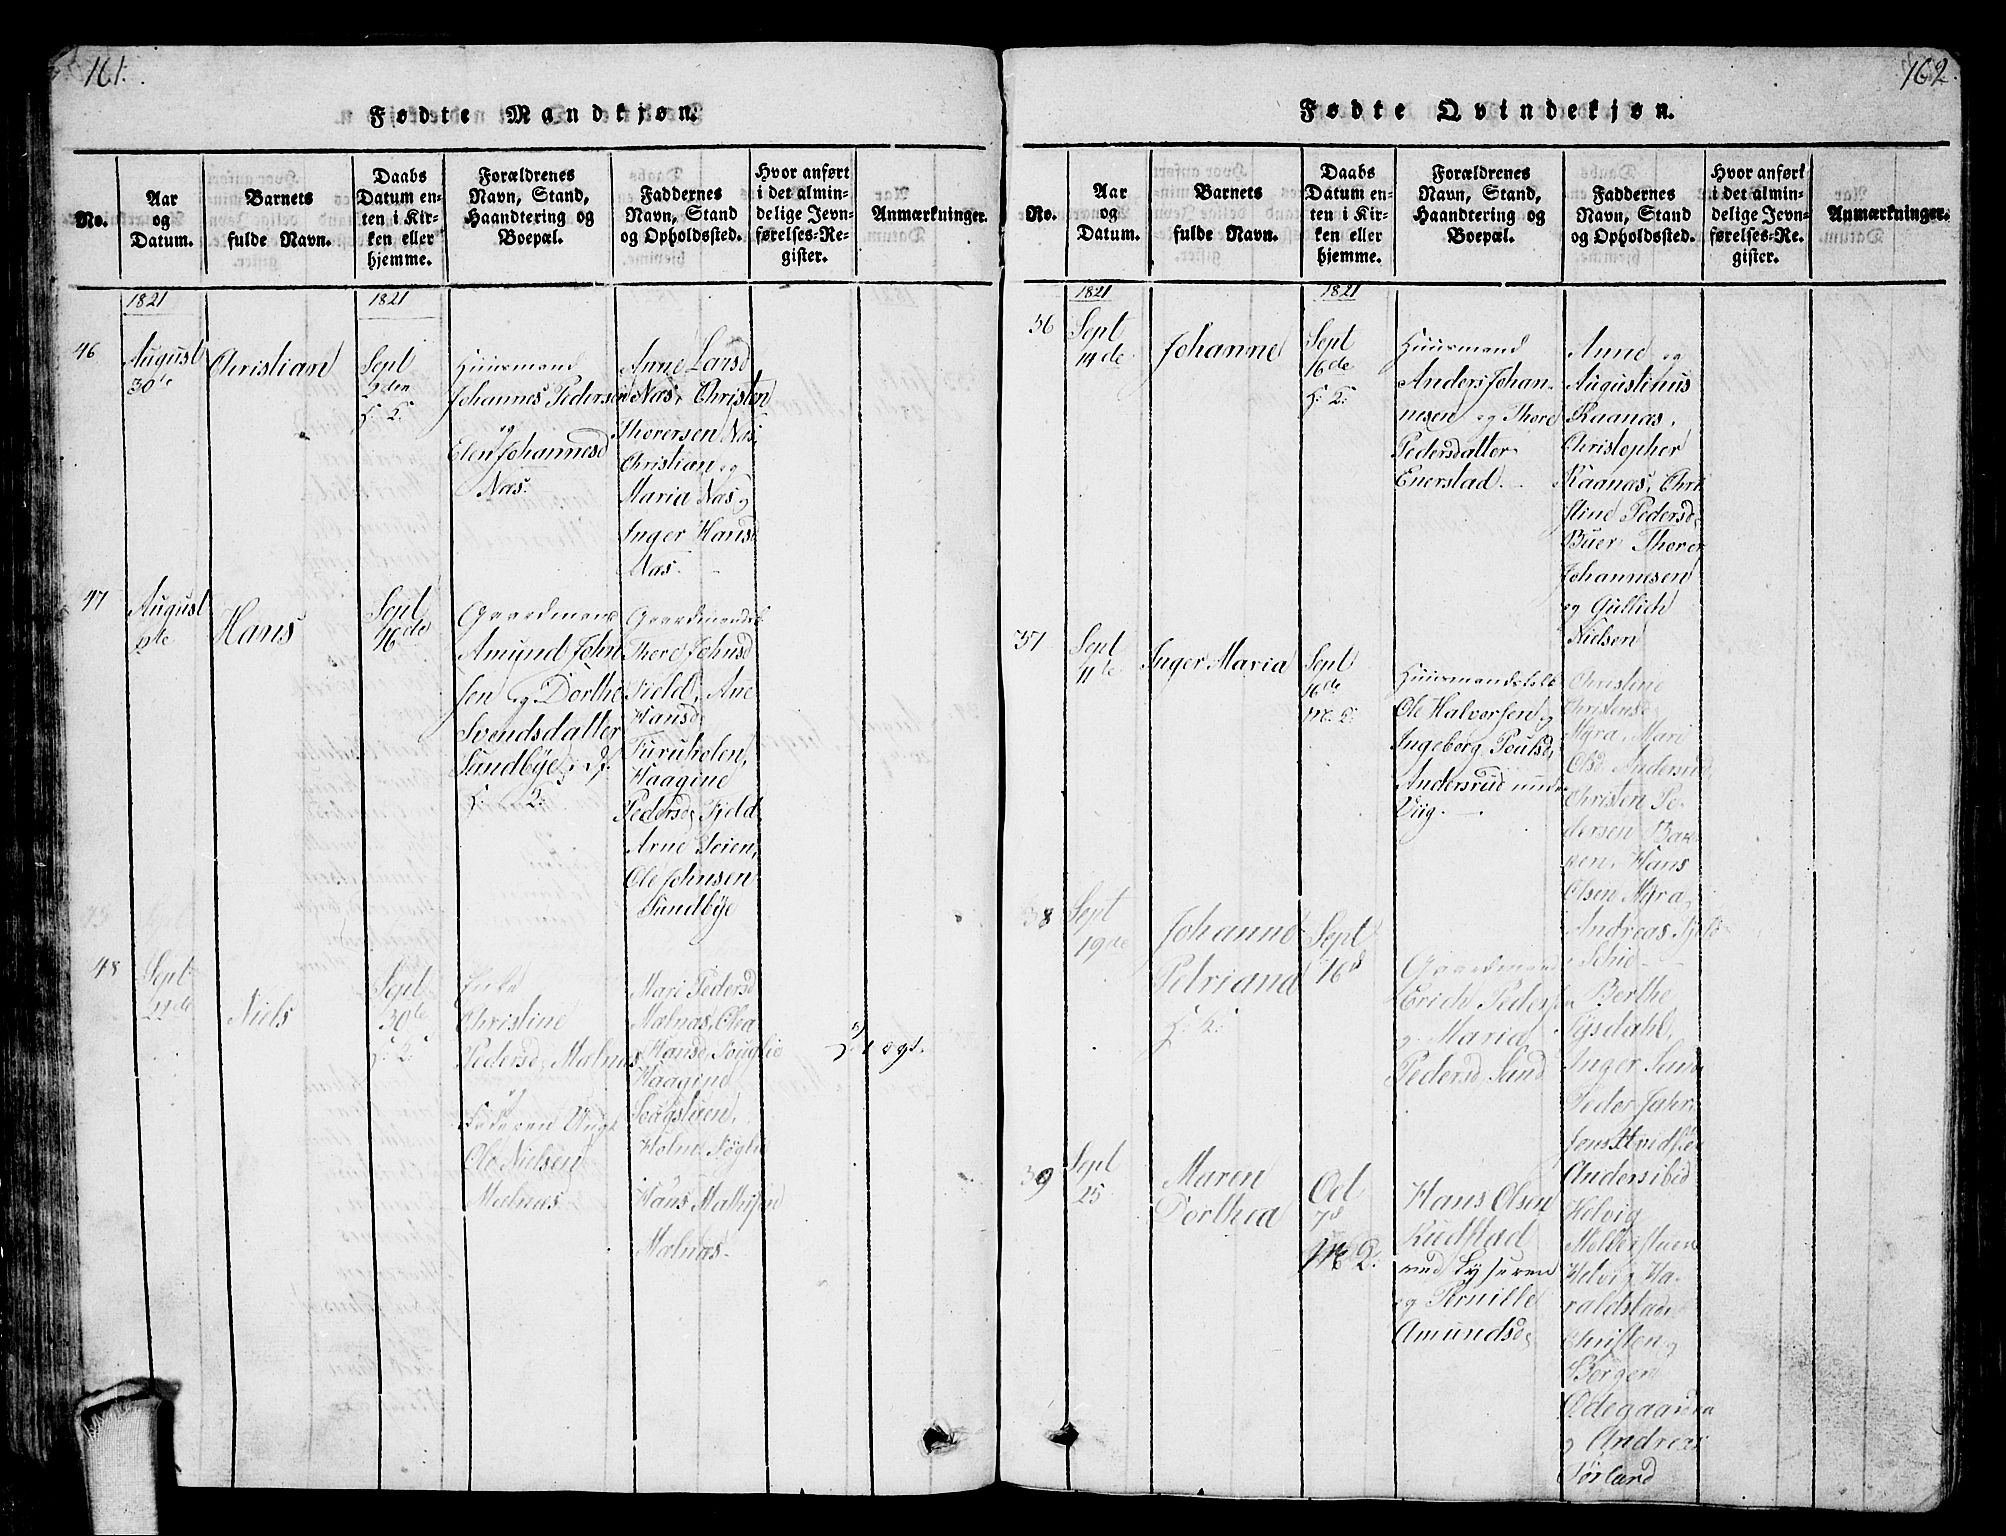 161.
Fødte Mandkjøn.
No.
Aar
og
Datum.
Barnets
fulde Navn.
Daabs
Datum en-
ten i Kir-
ken eller
hjemme.
Forældrenes
Navn, Stand,
Haandtering og
Boepæl.
Faddernes
Navn, Stand
og Opholdssted.
Hvor anført
i det almin-
delige Jevn-
førelses-Re-
gister.
Anmærkninger.
1821
1821
46
August
30te
Christian
Sept
2den
H: K:
Huusmand
Johannes Pedersen
og
Elen Johannesd
Næs.
Arne Larsd
Næs, Christen
Thoversen Næs,
Christian og
Maria Næs og
Inger Hansd
Næs.
47
August
Hans
Sept
16de
Gaardmand
Amund John
sen og Dorthe
Svendsdatter
Sundbye
Gaardmandsk
Thore Johnsd
Field, Ane
Hansd
Furuholen,
Haagine
Pedersd, Fjeld
Arne Steien,
Ole Johnsen
Sundbye
48
Sept
Niels
Sept
30te
Enke
Christine
Pedersd, Mælnæs
og
Ole Nielsen
Mælnæs
Mari Pedersd
Mælnæs, Olea
Hansd,
Haagine
Hans Mathisen
Mælnæs
162.
Fødte Qvindekjøn.
No.
Aar
og
Datum.
Barnets
fulde Navn.
Daabs
Datum en-
ten i Kir-
ken eller
hjemme.
Forældrenes
Navn, Stand,
Haandtering og
Boepæl.
Faddernes
Navn, Stand
og Opholdssted.
Hvor anført
i det almin-
delige Jevn-
førelses-Re-
gister.
Anmærkninger.
1821
1821
36
Sept
14de
Johanne
Sept
16de
H: K:
Huusmand
Anders Johan-
nesen og Thore
Pedersdatter
Enerstad.
Anne og
Augustinus
Raanas,
Christopher
Raanas, Chri
stine Pedersd,
Buer Thorer
Johannesen
og Gullich
Nielsen
37
Sept
11te
Inger Maria
Sept
16de
Huusmandsfolk
Ole Halvorsen og
Ingeborg Poulsd,
Andersrud under
Viig.
Christine
Christensd
Myra, Mari
Olsd Andersrud
Christen Pe-
dersen Bak
ken, Hans
Olsen Myra,
Andreas
38
Sept
19de
Johanne
Petriane
H: K:
Sept
16d
Gaardmand
Erich Pedersen
og Maria
Pedersd Sand
Berthe
Tysdahl,
Inger Sand
Peder
39
Sept
25
Maren
Dorthea
Oct
7d
Hans Olsen
Rudstad
ved Lyseren
og Pernille
Amundsd,
Helvig
Helvig Ha-
raldstad
Christen og
Børger
Ødegaarden
og Andreas
Tørland